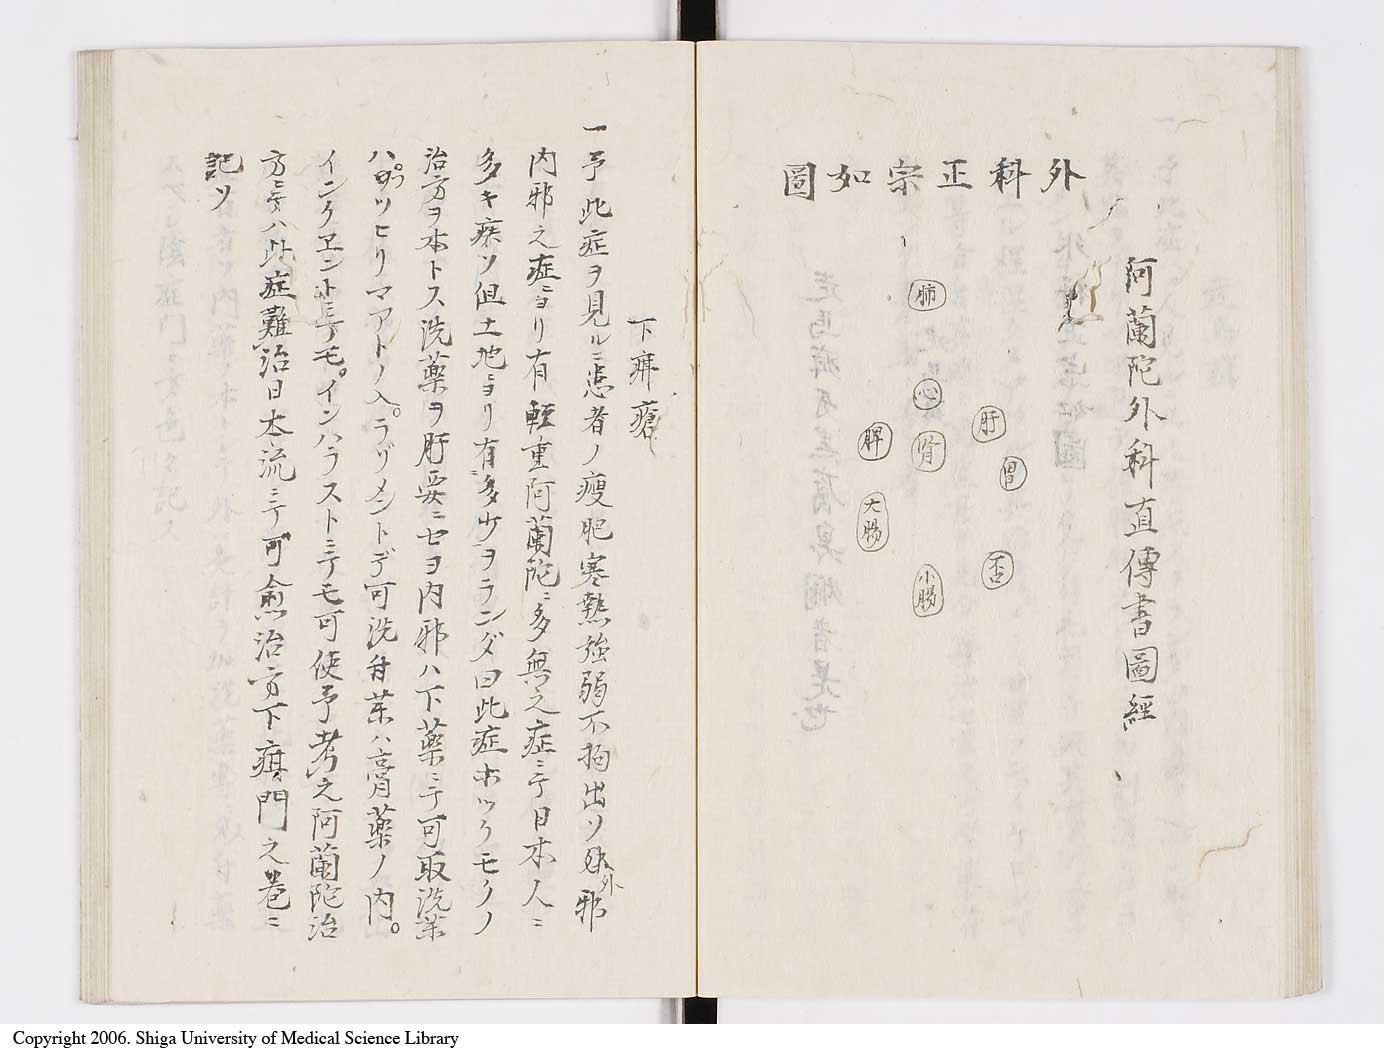 阿蘭陀外科直傳書圖經
外科正宗如圖
肺
心
肝
脾
腎
胃
大腸
否
小腸
下疳瘡
一予此症ヲ見ルニ患者ノ瘦肥寒熱強弱不拘出ソ外邪
内邪之症ニヨリ有輕重阿蘭陀ニ多無之症ニテ日本人ニ
多キ疾ソ但土地ニヨリ有多少ヲランダ曰此症ホツクモクノ
治方ヲ本トス洗藥ヲ肝要ニセヨ内邪ハ下藥ニテ可取洗薬
ハ カツヒリマアトノ入ラヅメントデ可洗 付薬ハ膏藥ノ内
インクエントニテモインハラストニテモ可使予考之阿蘭陀治
方ニテハ此症難治日本流ニテ可愈治方下疳門之巻ニ
記ソ
Copyright 2006. Shiga University of Medical Science Library